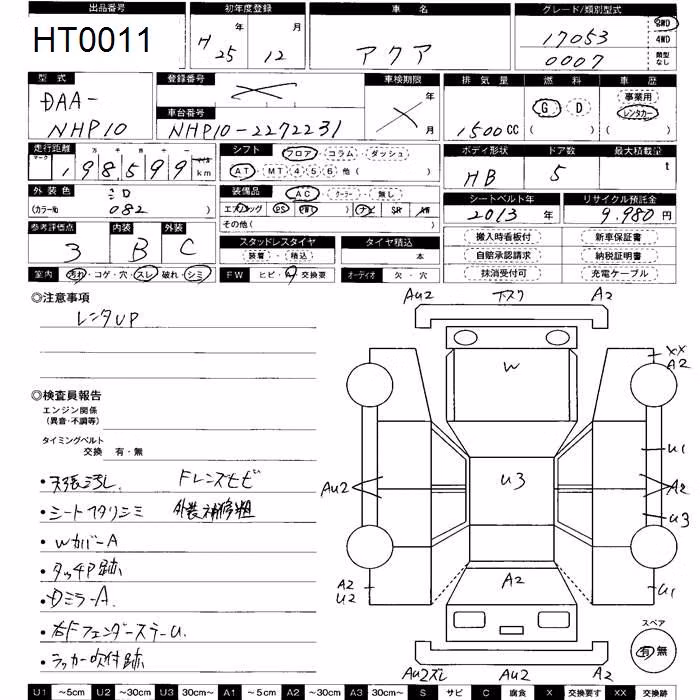 出品番号 初年度登録 車名 グレード/類別型式
HT0011 H 25年 12月 アクア 17053 0007 2WD 4WD 類型なし
型式 登録番号 車検期限 排気量 燃料 車歴
DAA-NHP10 年 月 1500cc G・D ( ) 事業用 レンタカー ( )
車台番号
NHP10-2272231
走行距離 シフト フロア・コラム・ダッシュ ボディ形状 ドア数 最大積載量
マーク 十 万 千 百 十 一 マイル
198599 km AT・MT 4 5 6 他 ( ) HB 5 t
外装色 装備品 AC・クーラー・無し シートベルト年 リサイクル預託金
(カラーNo 082 ) エアバッグ PS PW ナビ SR AW 2013年 9,980円
その他( )
参考評価点 内装 外装 スタッドレスタイヤ タイヤ積込 搬入時看板付 新車保証書
3 B C 装着・積込 本 自賠承認請求 納税証明書
室内 汚れ・コゲ・穴・スレ・破れ・シミ FW ヒビ・キ・交換要 オーディオ 欠・穴 抹消受付可 充電ケーブル
◎注意事項
レンタUP
◎検査員報告
エンジン関係
(異音・不調等)
タイミングベルト
交換 有・無
・天張汚れ. Fレンズヒビ
・シートスタリシミ 外装補修粗
・WカバーA
・タッチP跡
・DミラーA.
・右FフェンダーステーU.
・ラッカー吹付跡
AU2 下スリ A2
XX
A2
W
U1
AU2 U3 A2
U3
A2
U2 A2 U1
AU2ズレ A2
スペア
有・無
U1 ~5cm U2 ~30cm U3 30cm~ A1 ~5cm A2 ~30cm A3 30cm~ S サビ C 腐食 X 交換要す XX 交換跡